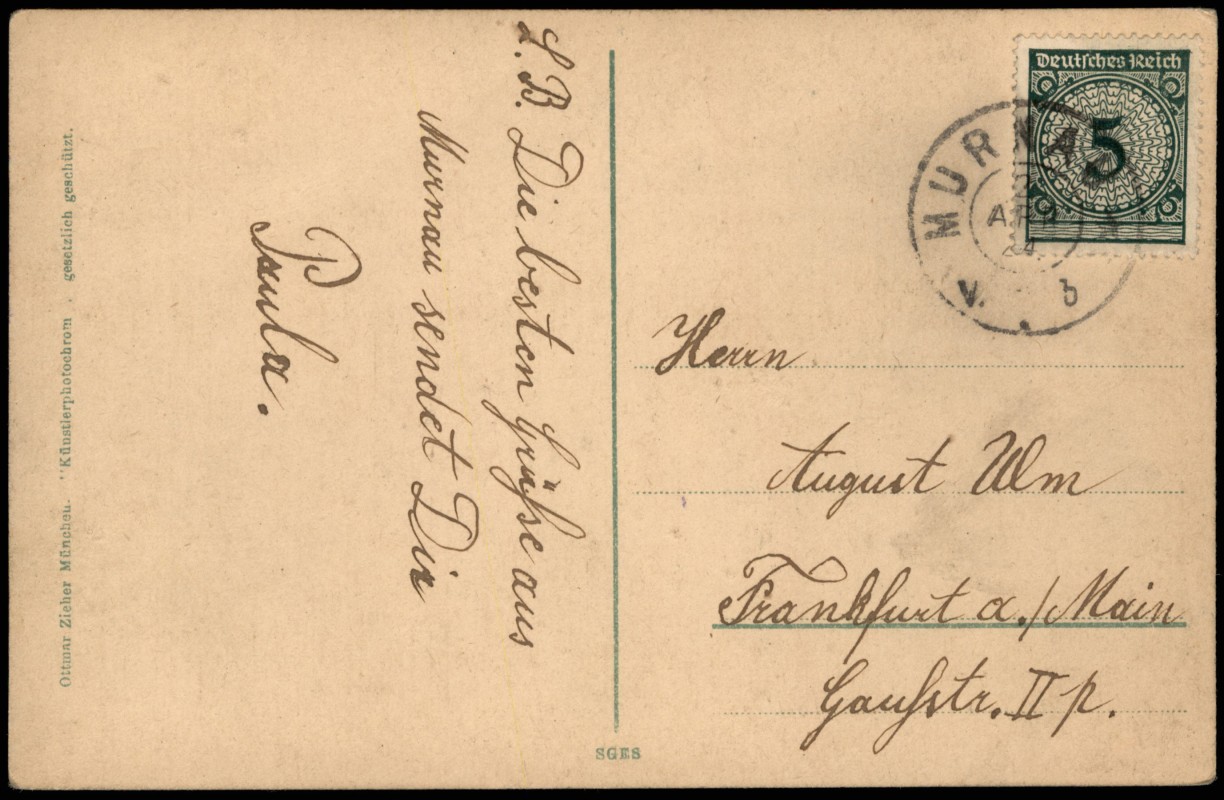 L. B. Die besten Grüße aus
Murnau sendet Dir
Paula.
Ottmar Zieher München. "Künstlerphotochrom . gesetzlich geschützt.
SGES
Deutsches Reich
5
MURNAU
APR
24
V. b
Herrn
August Ulm
Frankfurt a./Main
Gaußstr. II p.